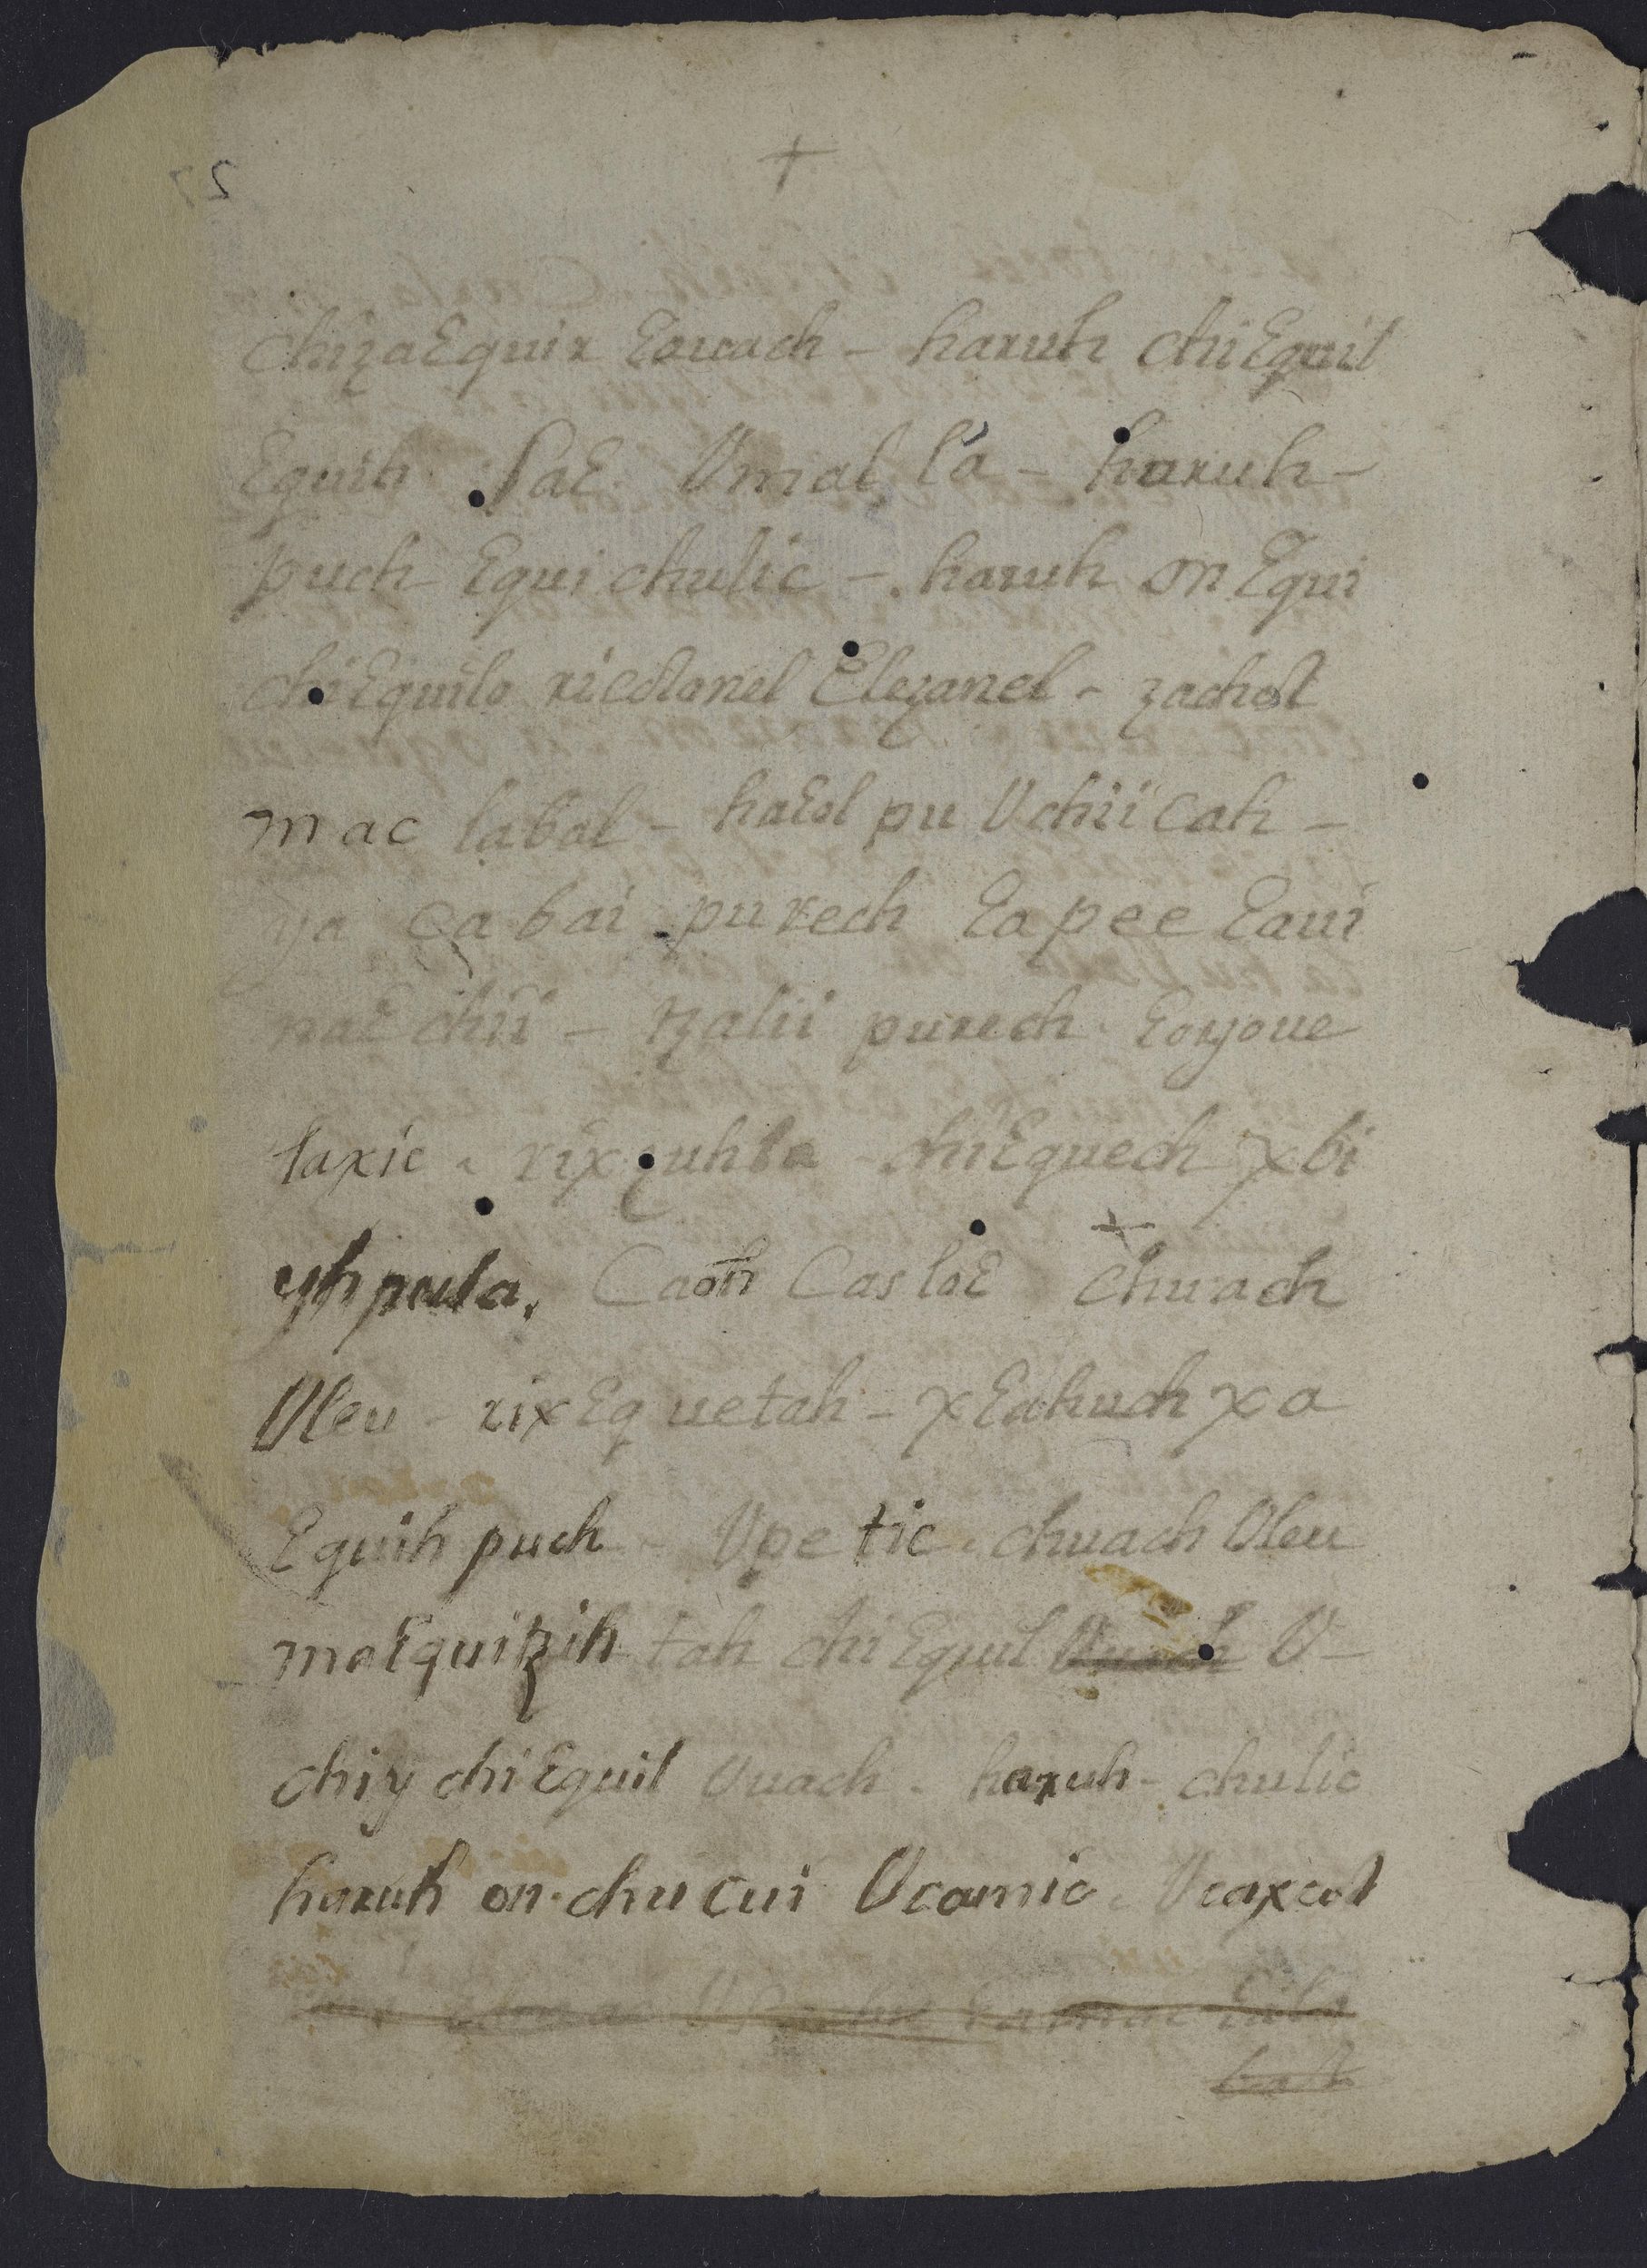 +
chizaƐquir Ɛauach - haruh chiƐquil
Ɛquih SaƐ Vmal la - haruh -
puch Ɛqui chulic - haruh on Ɛqui
chiƐquilo Ɛlezanel - zachol
mac labal - haƐol pu Vchii cah -
ya cabai purech Ɛapee Ɛaui
naƐ chii - tzalii purech
taxic rixzuhla chiƐquech xbi
yh pula, Caoh CaslaƐ chuach
Vleu - rixƐquetah - xƐahuch xa
Ɛquih puch - Vpetic chuach Vleu
maƐquitzih tah chiƐquil Vuach V-
chiy chiƐquil Vuach - haruh - chulic
haruh on chu cui Vcamic Vcaxcol